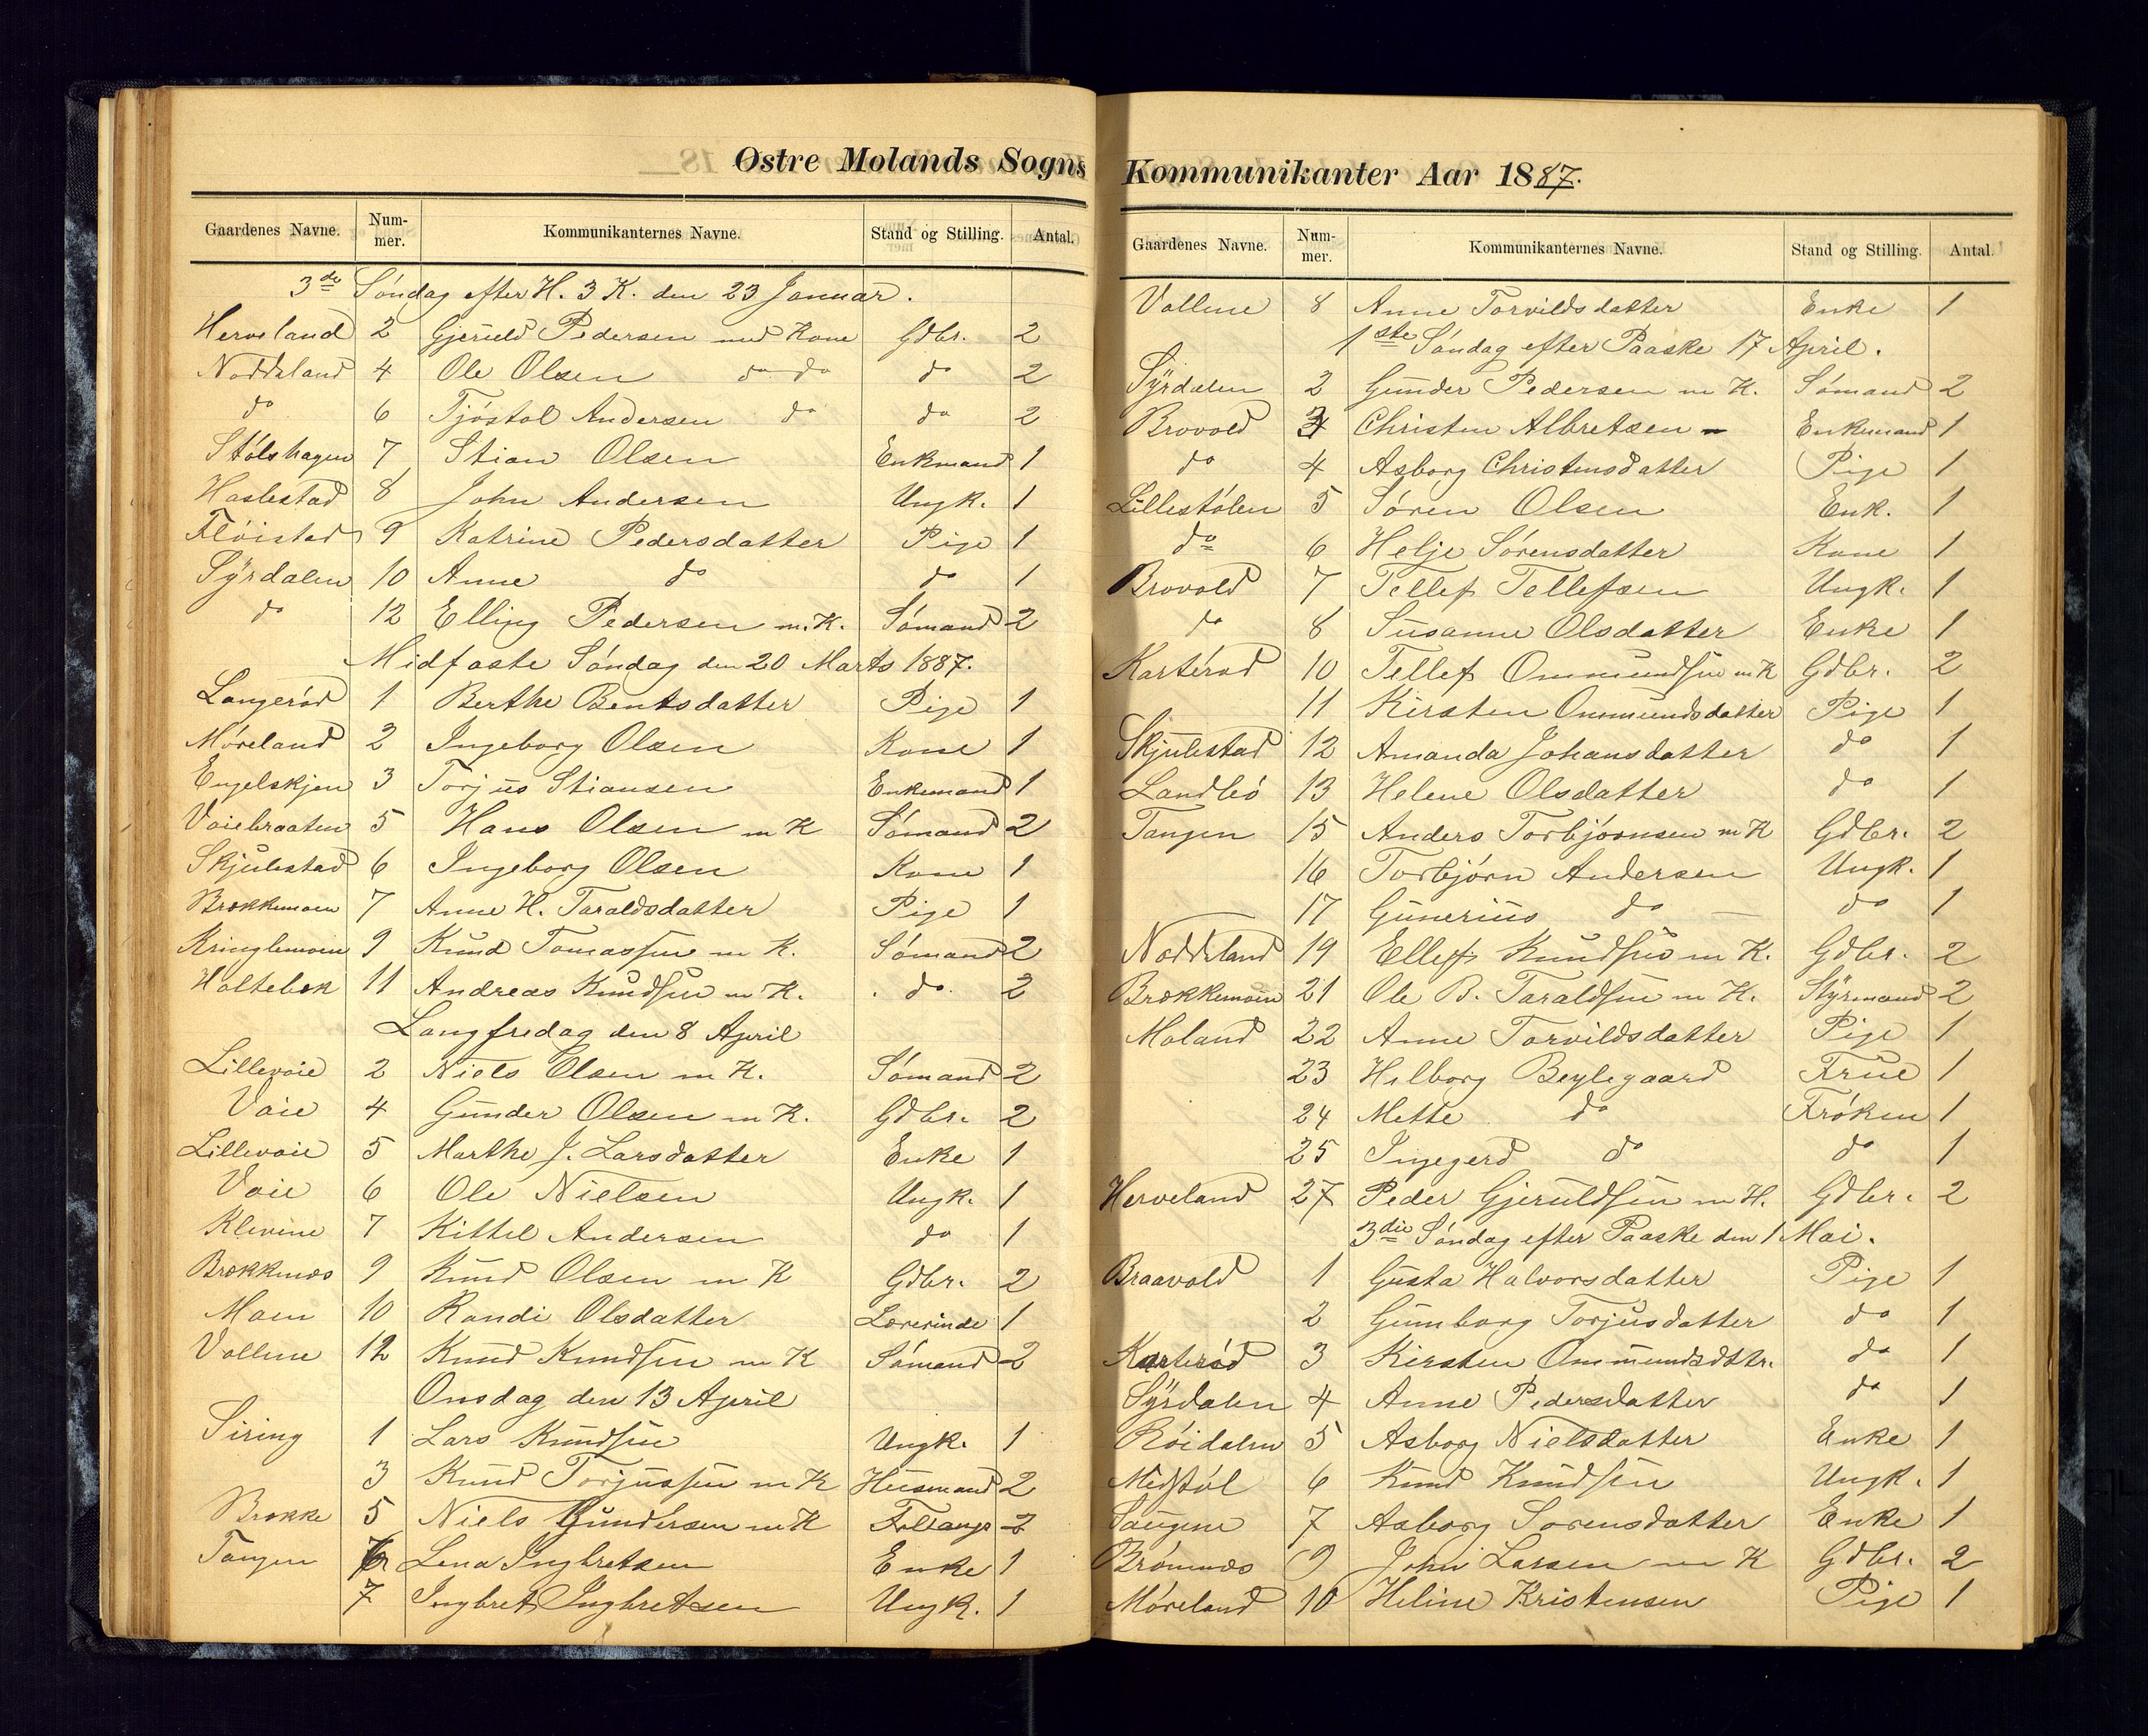 Østre Molands Sogns
Gaardenes Navne. Num-mer. Kommunikanternes Navne. Stand og Stilling. Antal.
3de Søndag efter H. 3 K. den 23 Januar.
Herveland 2 Gjeruld Pedersen med Kone Gdbr. 2
Noddeland 4 Ole Olsen do do do 2
do 6 Tjøstol Andersen do do 2
Stølshagen 7 Stian Olsen Enkmand 1
Haslestad 8 John Andersen Ungk. 1
Fløistad 9 Katrine Pedersdatter Pige 1
Syrdalen 10 Anne do do 1
do 12 Elling Pedersen m. K. Sømand 2
Midfaste Søndag den 20 Marts 1887.
Langerød 1 Berthe Bentsdatter Pige 1
Møreland 2 Ingeborg Olsen Kone 1
Engelskjen 3 Torjus Stiansen Enkemand 1
Vaiebraaten 5 Hans Olsen m K Sømand 2
Skjulestad 6 Ingeborg Olsen Kone 1
Brækkemoen 7 Anne H. Taraldsdatter Pige 1
Kringlemoen 9 Knud Tomassen m K. Sømand 2
Holtebek 11 Andreas Knudsen m K. do 2
Langfredag den 8 April
Lillevaie 2 Niels Olsen m K. Sømand 2
Vaie 4 Gunder Olsen m K. Gdbr. 2
Lillevaie 5 Marthe J. Larsdatter Enke 1
Vaie 6 Ole Nielsen Ungk. 1
Klevene 7 Kittel Andersen do 1
Brækknæs 9 Knud Olsen m K Gdbr. 2
Moen 10 Randi Olsdatter Lærerinde 1
Vollene 12 Knud Knudsen m K Sømand 2
Onsdag den 13 April
Siring 1 Lars Knudsen Ungk. 1
3 Knud Torjussen m K Husmand 2
Brække 5 Niels Gundersen m K 2
Tangen 6 Lena Ingbretsen Enke 1
7 Ingbret Ingbretsen Ungk. 1
Kommunikanter Aar 1887.
Gaardenes Navne. Num-mer. Kommunikanternes Navne. Stand og Stilling. Antal.
Vollene 8 Anne Torvildsdatter Enke 1
1ste Søndag efter Paaske 17 April.
Syrdalen 2 Gunder Pedersen m K. Sømand 2
Brovold 3 Christen Albretsen Enkemand 1
do 4 Asborg Christensdatter Pige 1
Lillestølen 5 Søren Olsen Enk. 1
do 6 Helje Sørensdatter Kone 1
Brovold 7 Tellef Tellefsen Ungk. 1
do 8 Susanne Olsdatter Enke 1
Karterød 10 Tellef Ommundsen m K Gdbr. 2
11 Kirsten Ommundsdatter Pige 1
Skjulestad 12 Amanda Johansdatter do 1
Landbø 13 Helene Olsdatter do 1
Tangen 15 Anders Torbjørnsen m K Gdbr. 2
16 Torbjørn Andersen Ungk. 1
17 Gunerius do do 1
Noddeland 19 Ellef Knudsen m K. Gdbr. 2
Brækkemoen 21 Ole B. Taraldsen m K. Styrmand 2
Moland 22 Anne Torvildsdatter Pige 1
23 Hilborg Beylegaard Frue 1
24 Mette do Frøken 1
25 Ingegerd do do 1
Herveland 27 Peder Gjeruldsen m K. Gdbr. 2
3die Søndag efter Paaske den 1 Mai.
Braavold 1 Gusta Halvorsdatter Pige 1
2 Gumborg Torjusdatter do 1
Karterød 3 Kirsten Ommundsdttr. do 1
Syrdalen 4 Anne Pedersdatter do 1
Røidalen 5 Asborg Nielsdatter Enke 1
Midstøl 6 Knud Knudsen Ungk. 1
Saugene 7 Asborg Sorensdatter Enke 1
Brømnæs 9 John Larsen m K Gdbr. 2
Møreland 10 Heline Kristensen Pige 1